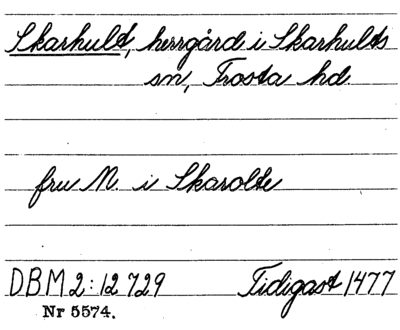 Skarhult, herrgård i Skarhults
sn, Frosta hd
fru N. i Skarolte
DBM 2:12 729 Tidigast 1477
Nr 5574.